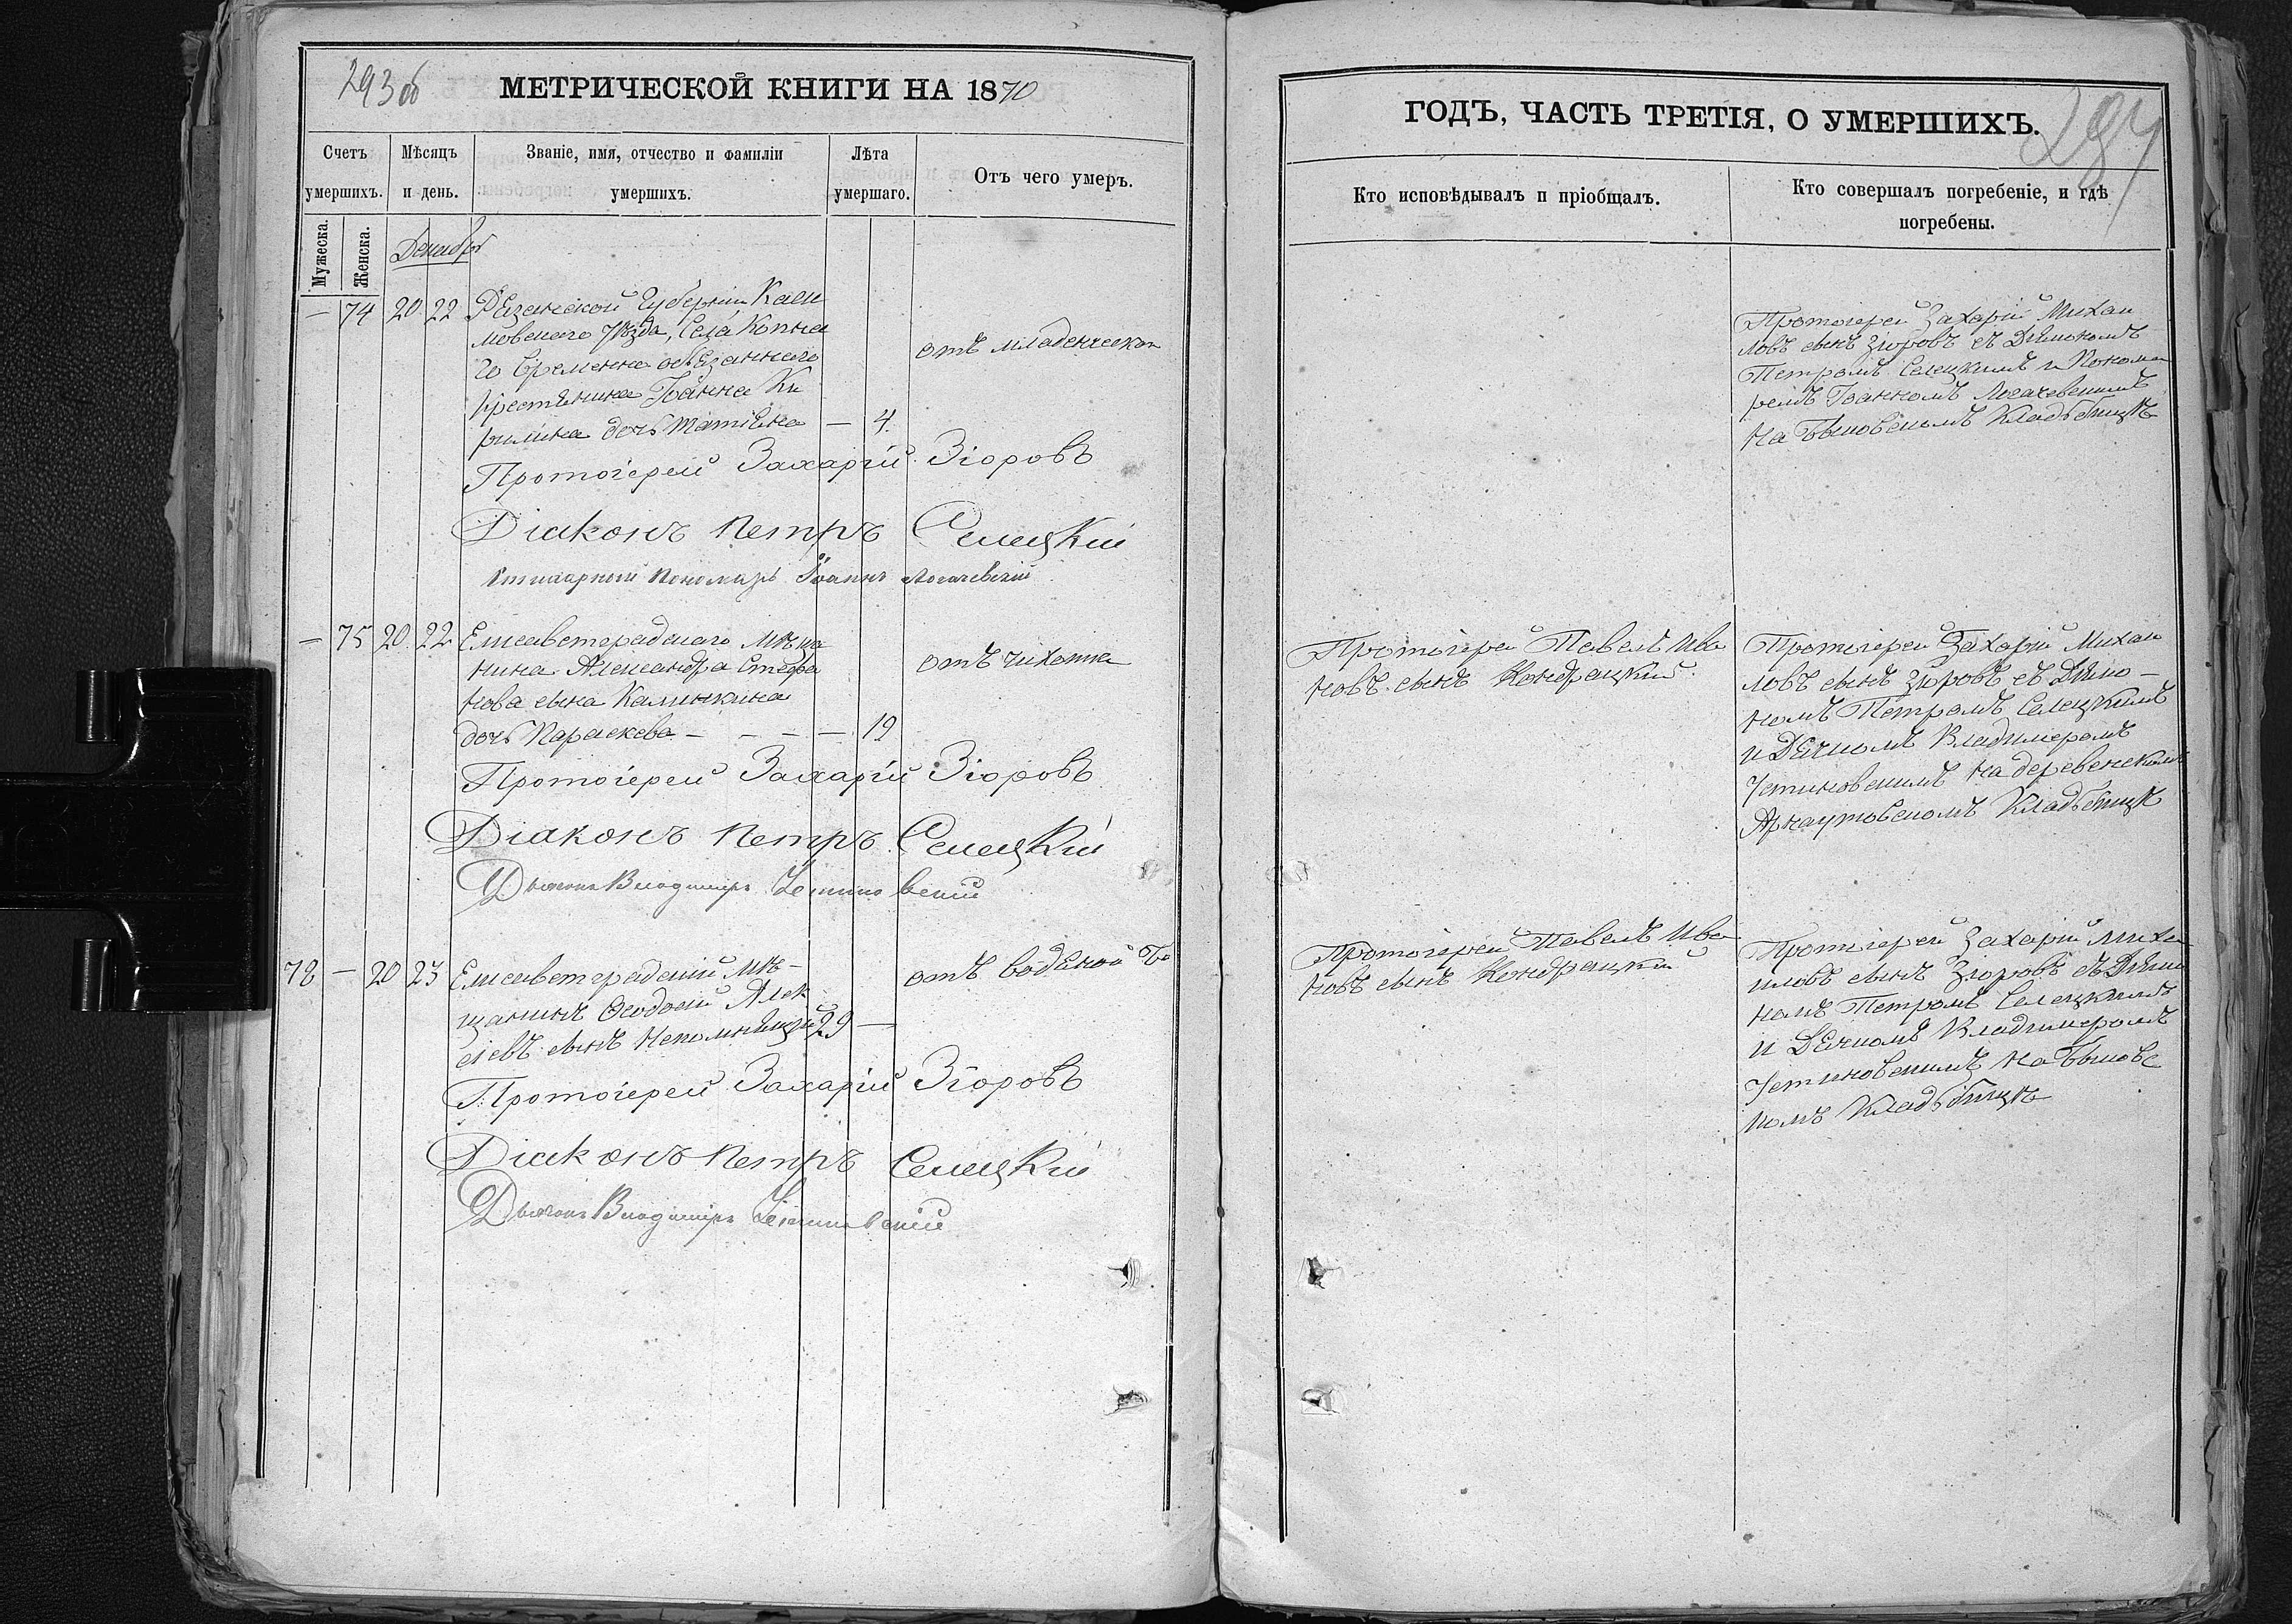 293 об
МЕТРИЧЕСКОЙ КНИГИ НА 1870
Счетъ умершихъ.
Мѣсяцъ и день.
Званіе, имя, отчество и фамиліи умершихъ.
Лѣта умершаго.
Отъ чего умеръ.
Мужеска.
Женска.
Декабрь
— 74 20 22 Рязанской Губерніи Каси
мовскаго Уѣзда, Села
го временно обязаннаго
крестянина Іоанна Ки
рилина дочь Татіана — 4.
отъ младенческой
Протоіерей Захарій Зіоровъ
Діаконъ Петръ Селецкій
Пономарь Іоаннъ Логачевскій
— 75 20 22 Елисаветградскаго Мѣща
нина Александра Стефа
нова сына Калинкина
дочь Параскева — — — — 19
отъ чихотки
Протоіерей Захарій Зіоровъ
Діаконъ Петръ Селецкій
Дьячокъ Владимиръ Устиновскій
78 — 20 23 Елисаветградскій Мѣ-
щанинъ Феодосій Алек
сіевъ сынъ Непомнящій 29 —
отъ водяной бо
Протоіерей Захарій Зіоровъ
Діаконъ Петръ Селецкій
Дьячокъ Владимиръ Устиновскій
ГОДЪ, ЧАСТЬ ТРЕТІЯ, О УМЕРШИХЪ.
294
Кто исповѣдывалъ п пріобщалъ.
Кто совершалъ погребеніе, и гдѣ погребены.
Протоіерей Захарій Михаи
ловъ сынъ Зіоровъ съ Діякономъ
Петромъ Селецкимъ и Понома
ремъ Іоанномъ Логачевскимъ
на Быковскомъ Кладбищѣ
Протоіерей Павелъ Ива
новъ сынъ Кондрацкій.
Протоіерей Захарій Михаи
ловъ сынъ Зіоровъ съ Діяко-
номъ Петромъ Селецкимъ
и Дячкомъ Владимеромъ
Устиновскимъ на деревенскомъ
Арнаутовскомъ Кладбищѣ
Протоіерей Павелъ Ива
новъ сынъ Кондрацкій
Протоіерей Захарій Миха
иловъ сынъ Зіоровъ съ Діяко
номъ Петромъ Селецкимъ
и Дячкомъ Владимеромъ
Устиновскимъ на Быковс
комъ Кладбищѣ